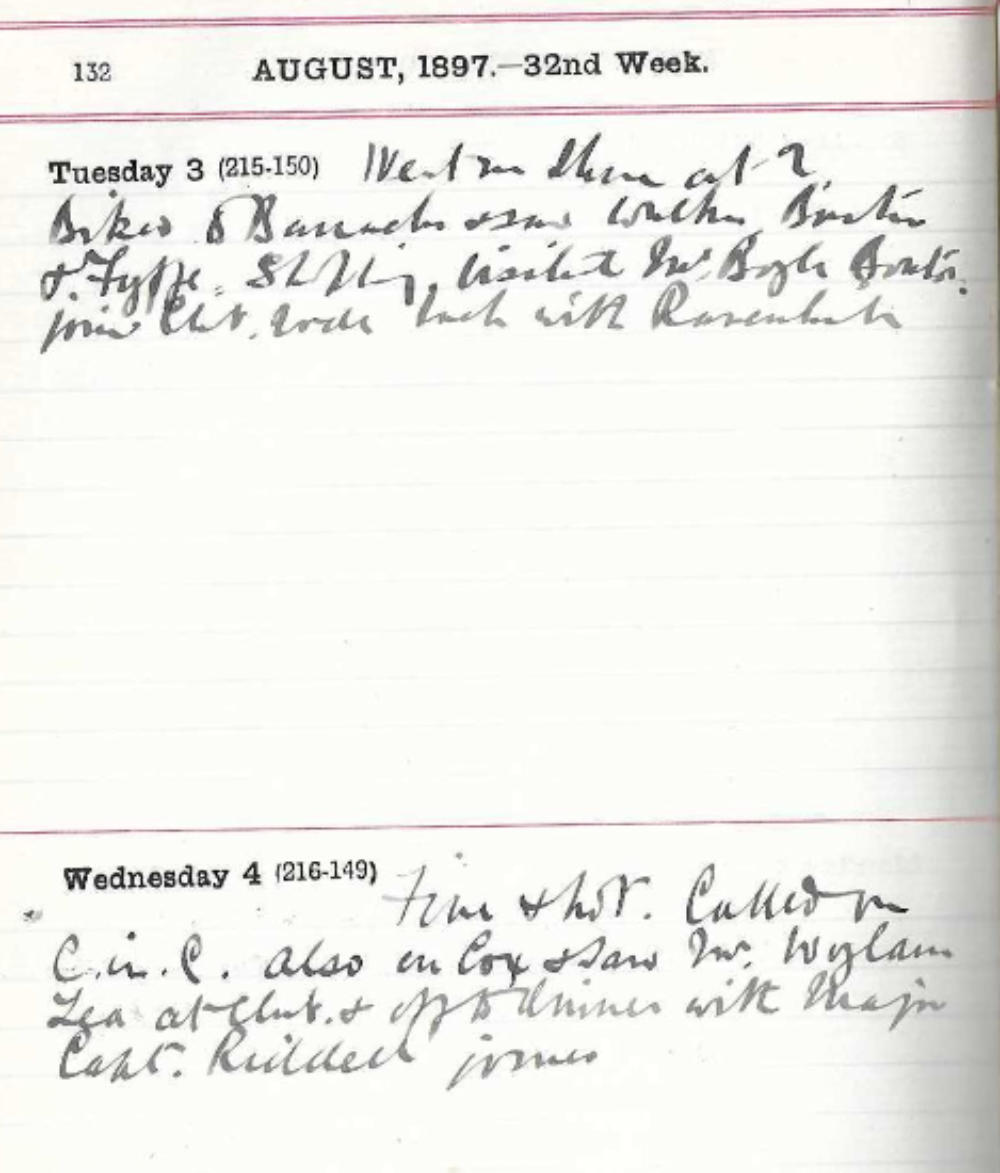 132 AUGUST, 1897.—32nd Week.
Tuesday 3 (215-150) Went on shore at 2
Biked to Barracks & saw
& Fyffe. visited Mr. Boyle
join Club. rode back with
Wednesday 4 (216-149) Fine & hot. Called on
C. in. C. also on Cox & saw Mr. Wylam
Tea at Club. & off to dinner with Major
Capt. Riddell joined